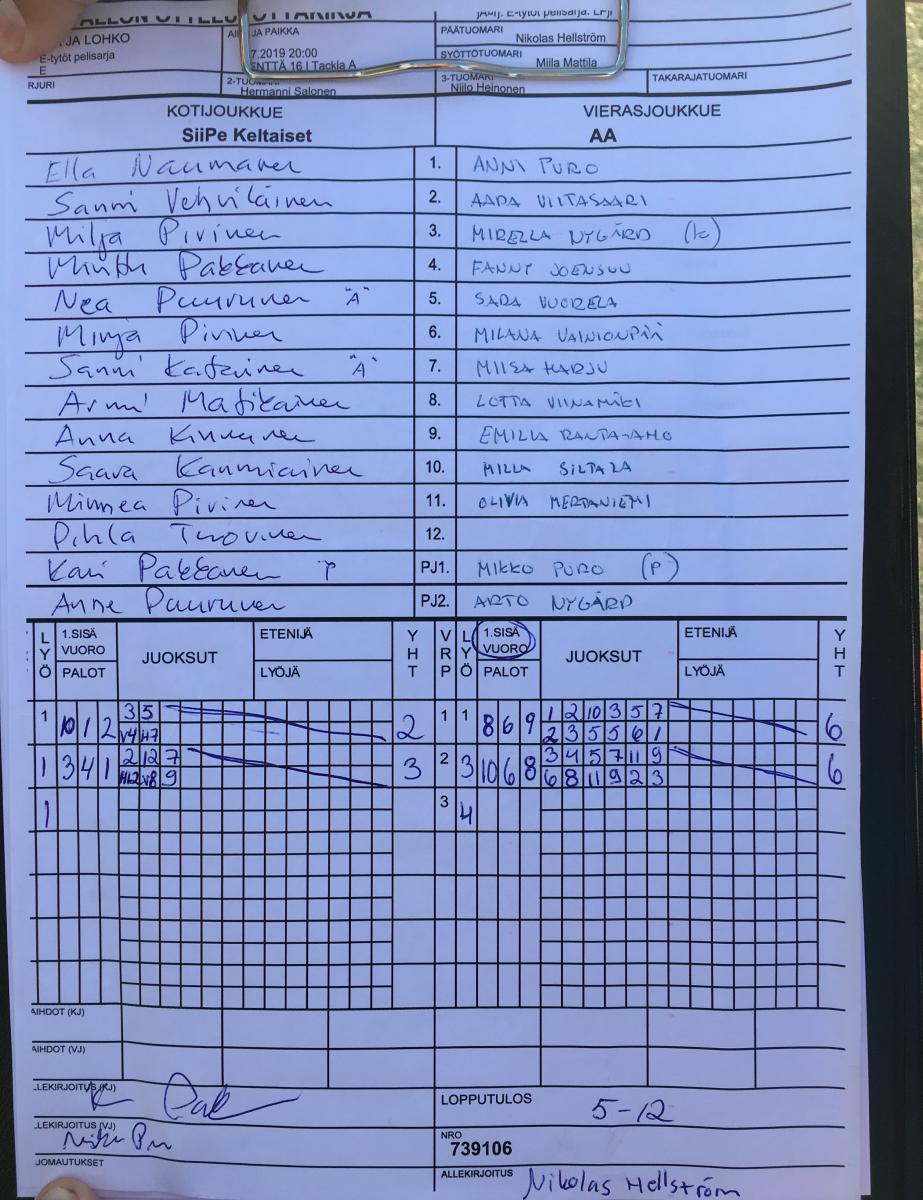 JA LOHKO
JA PAIKKA
E-tytöt pelisarja
E
7.2019 20:00
ENTTÄ 16 | Tackla A
PÄÄTUOMARI
Nikolas Hellström
SYÖTTÖTUOMARI
Miila Mattila
RJURI
2-TUOMARI
Hermanni Salonen
3-TUOMARI
Niilo Heinonen
TAKARAJATUOMARI
KOTIJOUKKUE VIERASJOUKKUE
SiiPe Keltaiset AA
Ella Naumanen 1. ANNI PURO
Sanni Vehviläinen 2. AADA VIITASAARI
Milja Pirinen 3. MIRELLA NYGÅRD (k)
Minttu Pakkanen 4. FANNY JOENSUU
Nea Puurunen "A" 5. SARA VUORELA
Minja Pirinen 6. MILANA VAINIONPÄÄ
Sanni Katainen "A" 7. MIISA HARJU
Armi Matikainen 8. LOTTA VIINAMÄKI
Anna Kinnunen 9. EMILIA RANTA-AHO
Saara 10. MILLA SILTALA
Minnea Pirinen 11. OLIVIA MERTANIEMI
Pihla Tuovinen 12.
Kari Pakkanen P PJ1. MIKKO PURO (P)
Anne Puurunen PJ2. ARTO NYGÅRD
LYÖ 1.SISÄ VUORO PALOT JUOKSUT ETENIJÄ LYÖJÄ YHT VRP LYÖ 1.SISÄ VUORO PALOT JUOKSUT ETENIJÄ LYÖJÄ YHT
1 10 1 2 3 5 2 1 1 8 6 9 1 2 10 3 5 7 6
V4 H7 2 3 5 5 6 1
1 3 4 1 2 12 7 3 2 3 10 6 8 3 4 5 7 11 9 6
H12 V8 9 6 8 11 9 2 3
1 3 4
AIHDOT (KJ)
AIHDOT (VJ)
LEKIRJOITUS (KJ)
LOPPUTULOS 5-12
LEKIRJOITUS (VJ)
NRO
739106
JOMAUTUKSET
ALLEKIRJOITUS Nikolas Hellström